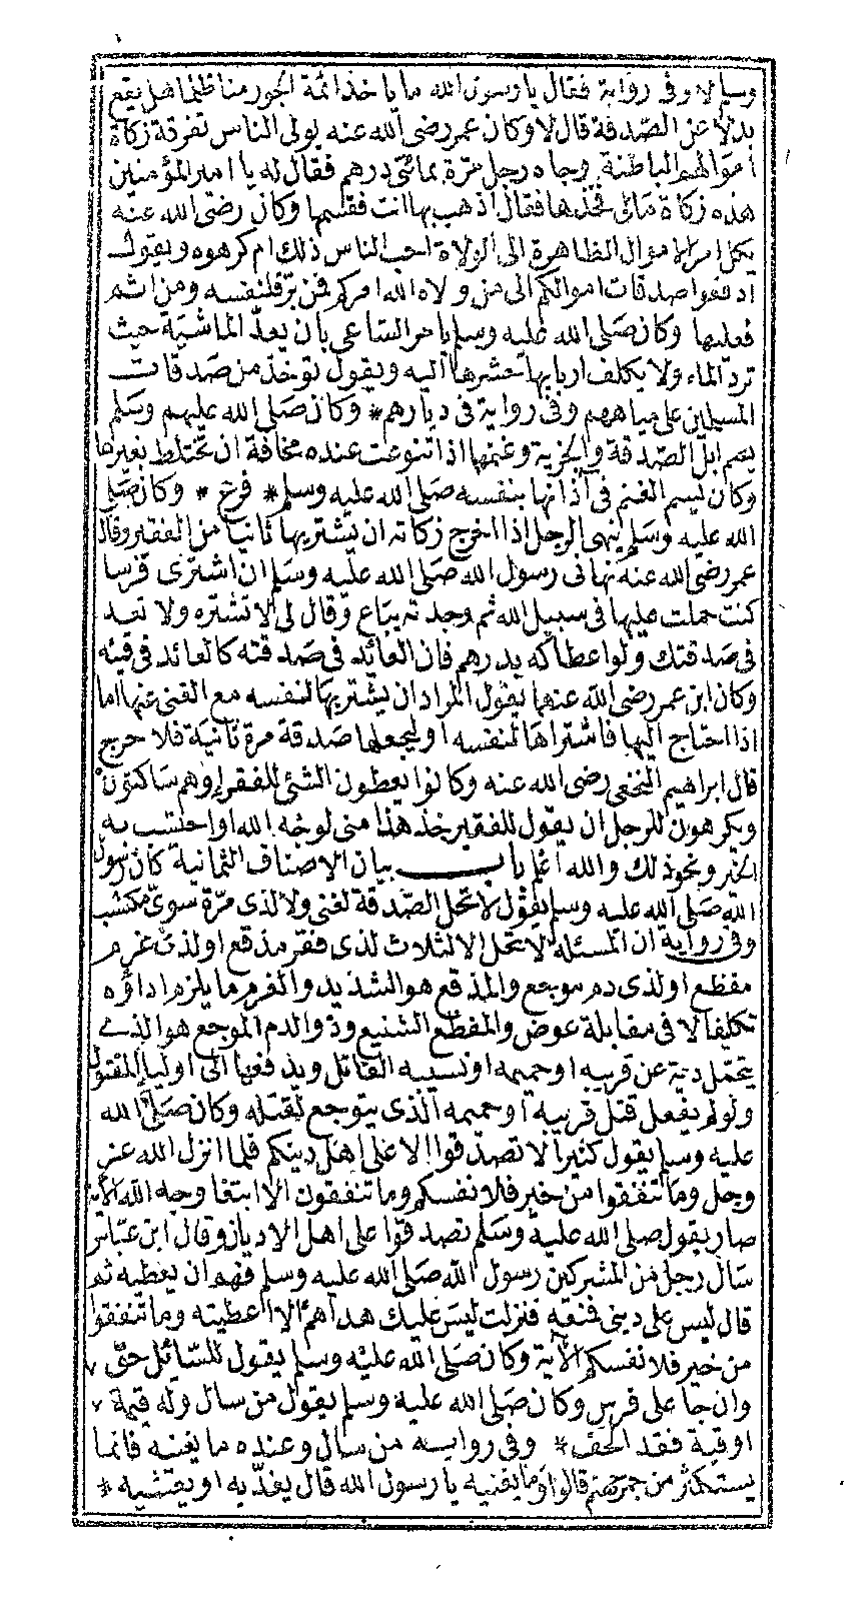 وسلم لا وفى رواية فقال يا رسول الله ما يأخذ ائمة الجور منا ظلما هل يقع
بدلا عن الصدقة قال لا وكان عمر رضى الله عنه يولى الناس تفرقة زكاة
اموالهم الباطنة وجاءه رجل مرة بمائتى درهم فقال له يا امير المؤمنين
هذه زكاة مالى فخذها فقال اذهب بها انت فقسمها وكان رضى الله عنه
يكل امر الاموال الظاهرة الى الولاة احب الناس ذلك ام كرهوه ويقول
ادفعوا صدقات اموالكم الى من ولاه الله امركم فمن بر فلنفسه ومن اثم
فعليها وكان صلى الله عليه وسلم يامر الساعى بان يعد الماشية حيث
ترد الماء ولا يكلف اربابها حشرها اليه ويقول تؤخذ من صدقات
المسلمين على مياههم وفى رواية فى ديارهم * وكان صلى الله عليهم وسلم
يسم ابل الصدقة والجزية وغنمها اذا تنوعت عنده مخافة ان تختلط بغيرها
وكان يسم الغنم فى آذانها بنفسه صلى الله عليه وسلم * فرع * وكان صلى
الله عليه وسلم ينهى الرجل اذا اخرج زكاته ان يشتريها ثانيا من الفقير وقال
عمر رضى الله عنه نهانى رسول الله صلى الله عليه وسلم ان اشترى فرسا
كنت حملت عليها فى سبيل الله ثم وجدته يباع وقال لى لا تشتره ولا تعد
فى صدقتك ولو اعطاكه بدرهم فان العائد فى صدقته كالعائد فى قيئه
وكان ابن عمر رضى الله عنهما يقول المراد ان يشتريها لنفسه مع الغنى عنها اما
اذا احتاج اليها فاشتراها لنفسه او ليجعلها صدقة مرة ثانية فلا حرج
قال ابراهيم النخعى رضى الله عنه وكانوا يعطون الشئ للفقراء وهم ساكتون
ويكرهون للرجل ان يقول للفقير خذ هذا منى لوجه الله او احتسب به
الخير ونحو ذلك والله اعلم باب بيان الاصناف الثمانية كان رسول
الله صلى الله عليه وسلم يقول لا تحل الصدقة لغنى ولا لذى مرة سوى مكتسب
وفى رواية ان المسئلة لا تحل الا لثلاث لذى فقر مدقع او لذى غرم
مفظع او لذى دم موجع والمدقع هو الشديد والغرم ما يلزم اداؤه
تكلفا لا فى مقابلة عوض والمفظع الشنيع وذو الدم الموجع هو الذى
يتحمل دية عن قريبه او حميمه او نسيبه القاتل ويدفعها الى اولياء المقتول
ولو لم يفعل قتل قريبه او حميمه الذى يتوجع لقتله وكان صلى الله
عليه وسلم يقول كثيرا لا تصدقوا الا على اهل دينكم فلما انزل الله عز
وجل وما تنفقوا من خير فلانفسكم وما تنفقون الا ابتغا وجه الله الآية
صار يقول صلى الله عليه وسلم تصدقوا على اهل الاديان وقال ابن عباس
سال رجل من المشركين رسول الله صلى الله عليه وسلم فهم ان يعطيه ثم
قال ليس على دينى فمنعه فنزلت ليس عليك هداهم الا اعطيته وما تنفقوا
من خير فلانفسكم الآية وكان صلى الله عليه وسلم يقول للسائل حق
وان جا على فرس وكان صلى الله عليه وسلم يقول من سال وله قيمة
اوقية فقد الحف * وفى رواية من سال وعنده ما يغنيه فانما
يستكثر من جمر جهنم قالوا وما يغنيه يا رسول الله قال يغديه او يعشيه *